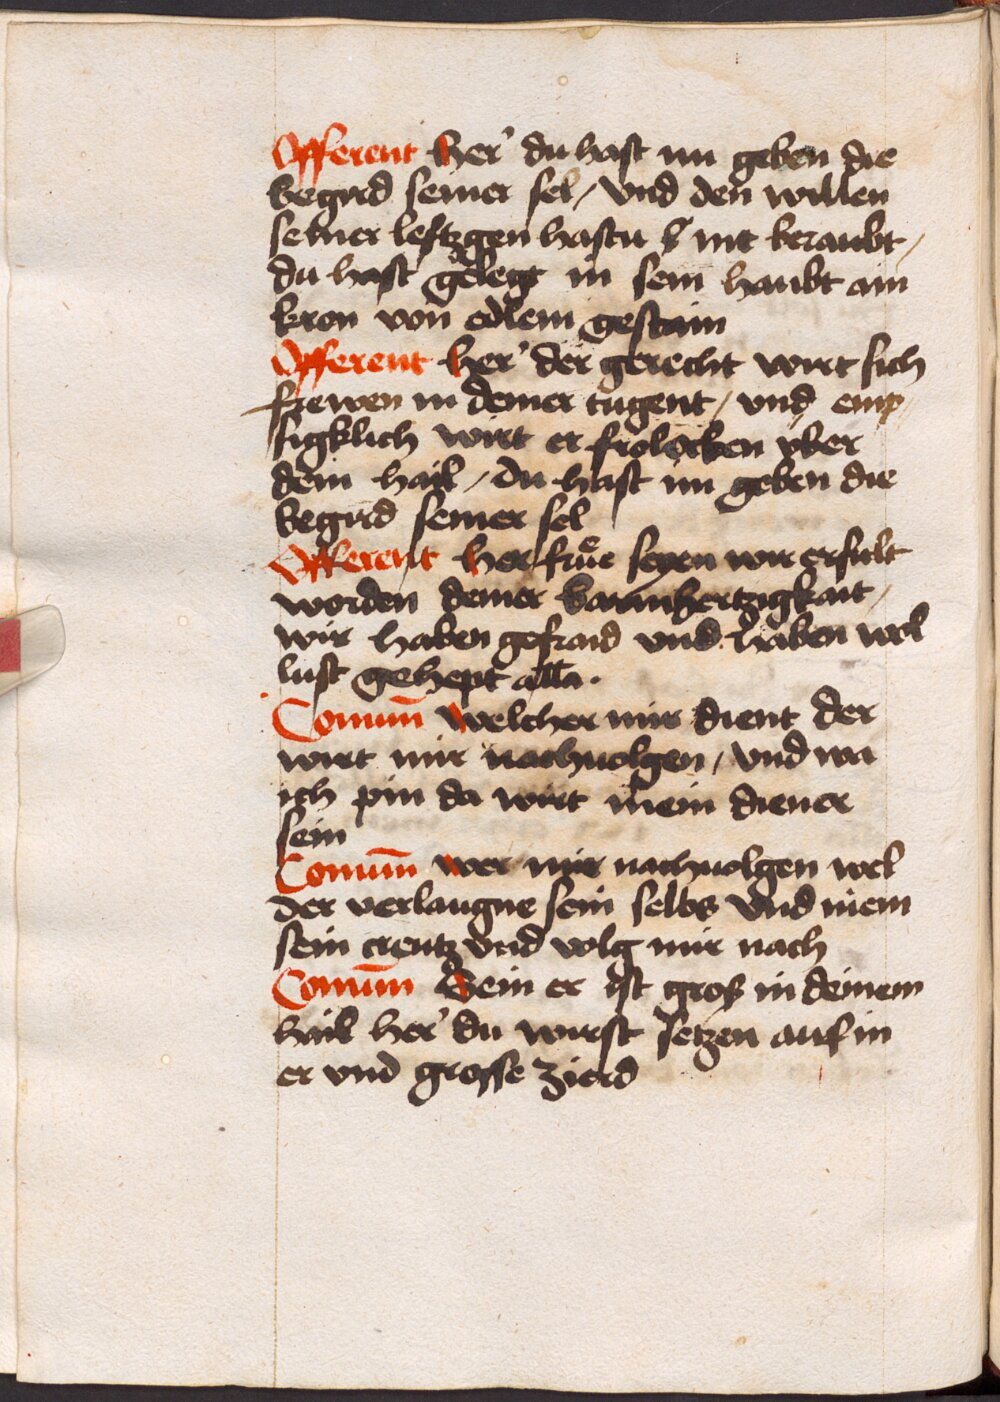 Offerent Her' du hast im geben die
begird seiner sel / vnd den willen
seiner leftzgen hastu nit beraubt /
du hast gelegt in sein haubt ain
kron von edlem gestain
Offerent Her' der gerecht wirt sich
frewen in deiner tugent / vnd emp
sigklich wirt er frolocken vber
dein hail / du hast im geben die
begird seiner sel
Offerent Her frue seyen wir erfult
worden deiner barmhertzigkait /
wir haben gefraid vnd haben wol
lust gehept alla.
Comun̄ welcher mir dient der
wirt mir nachuolgen / vnd wa
ich pin da wirt mein diener
sein
Comun̄ wer mir nachuolgen wel
der verlaugne sein selbs vnd niem
sein creutz vnd volg mir nach
Comun̄ Sein er ist gros in deinem
hail her' du wirst setzen auf in
er vnd grosse zierd